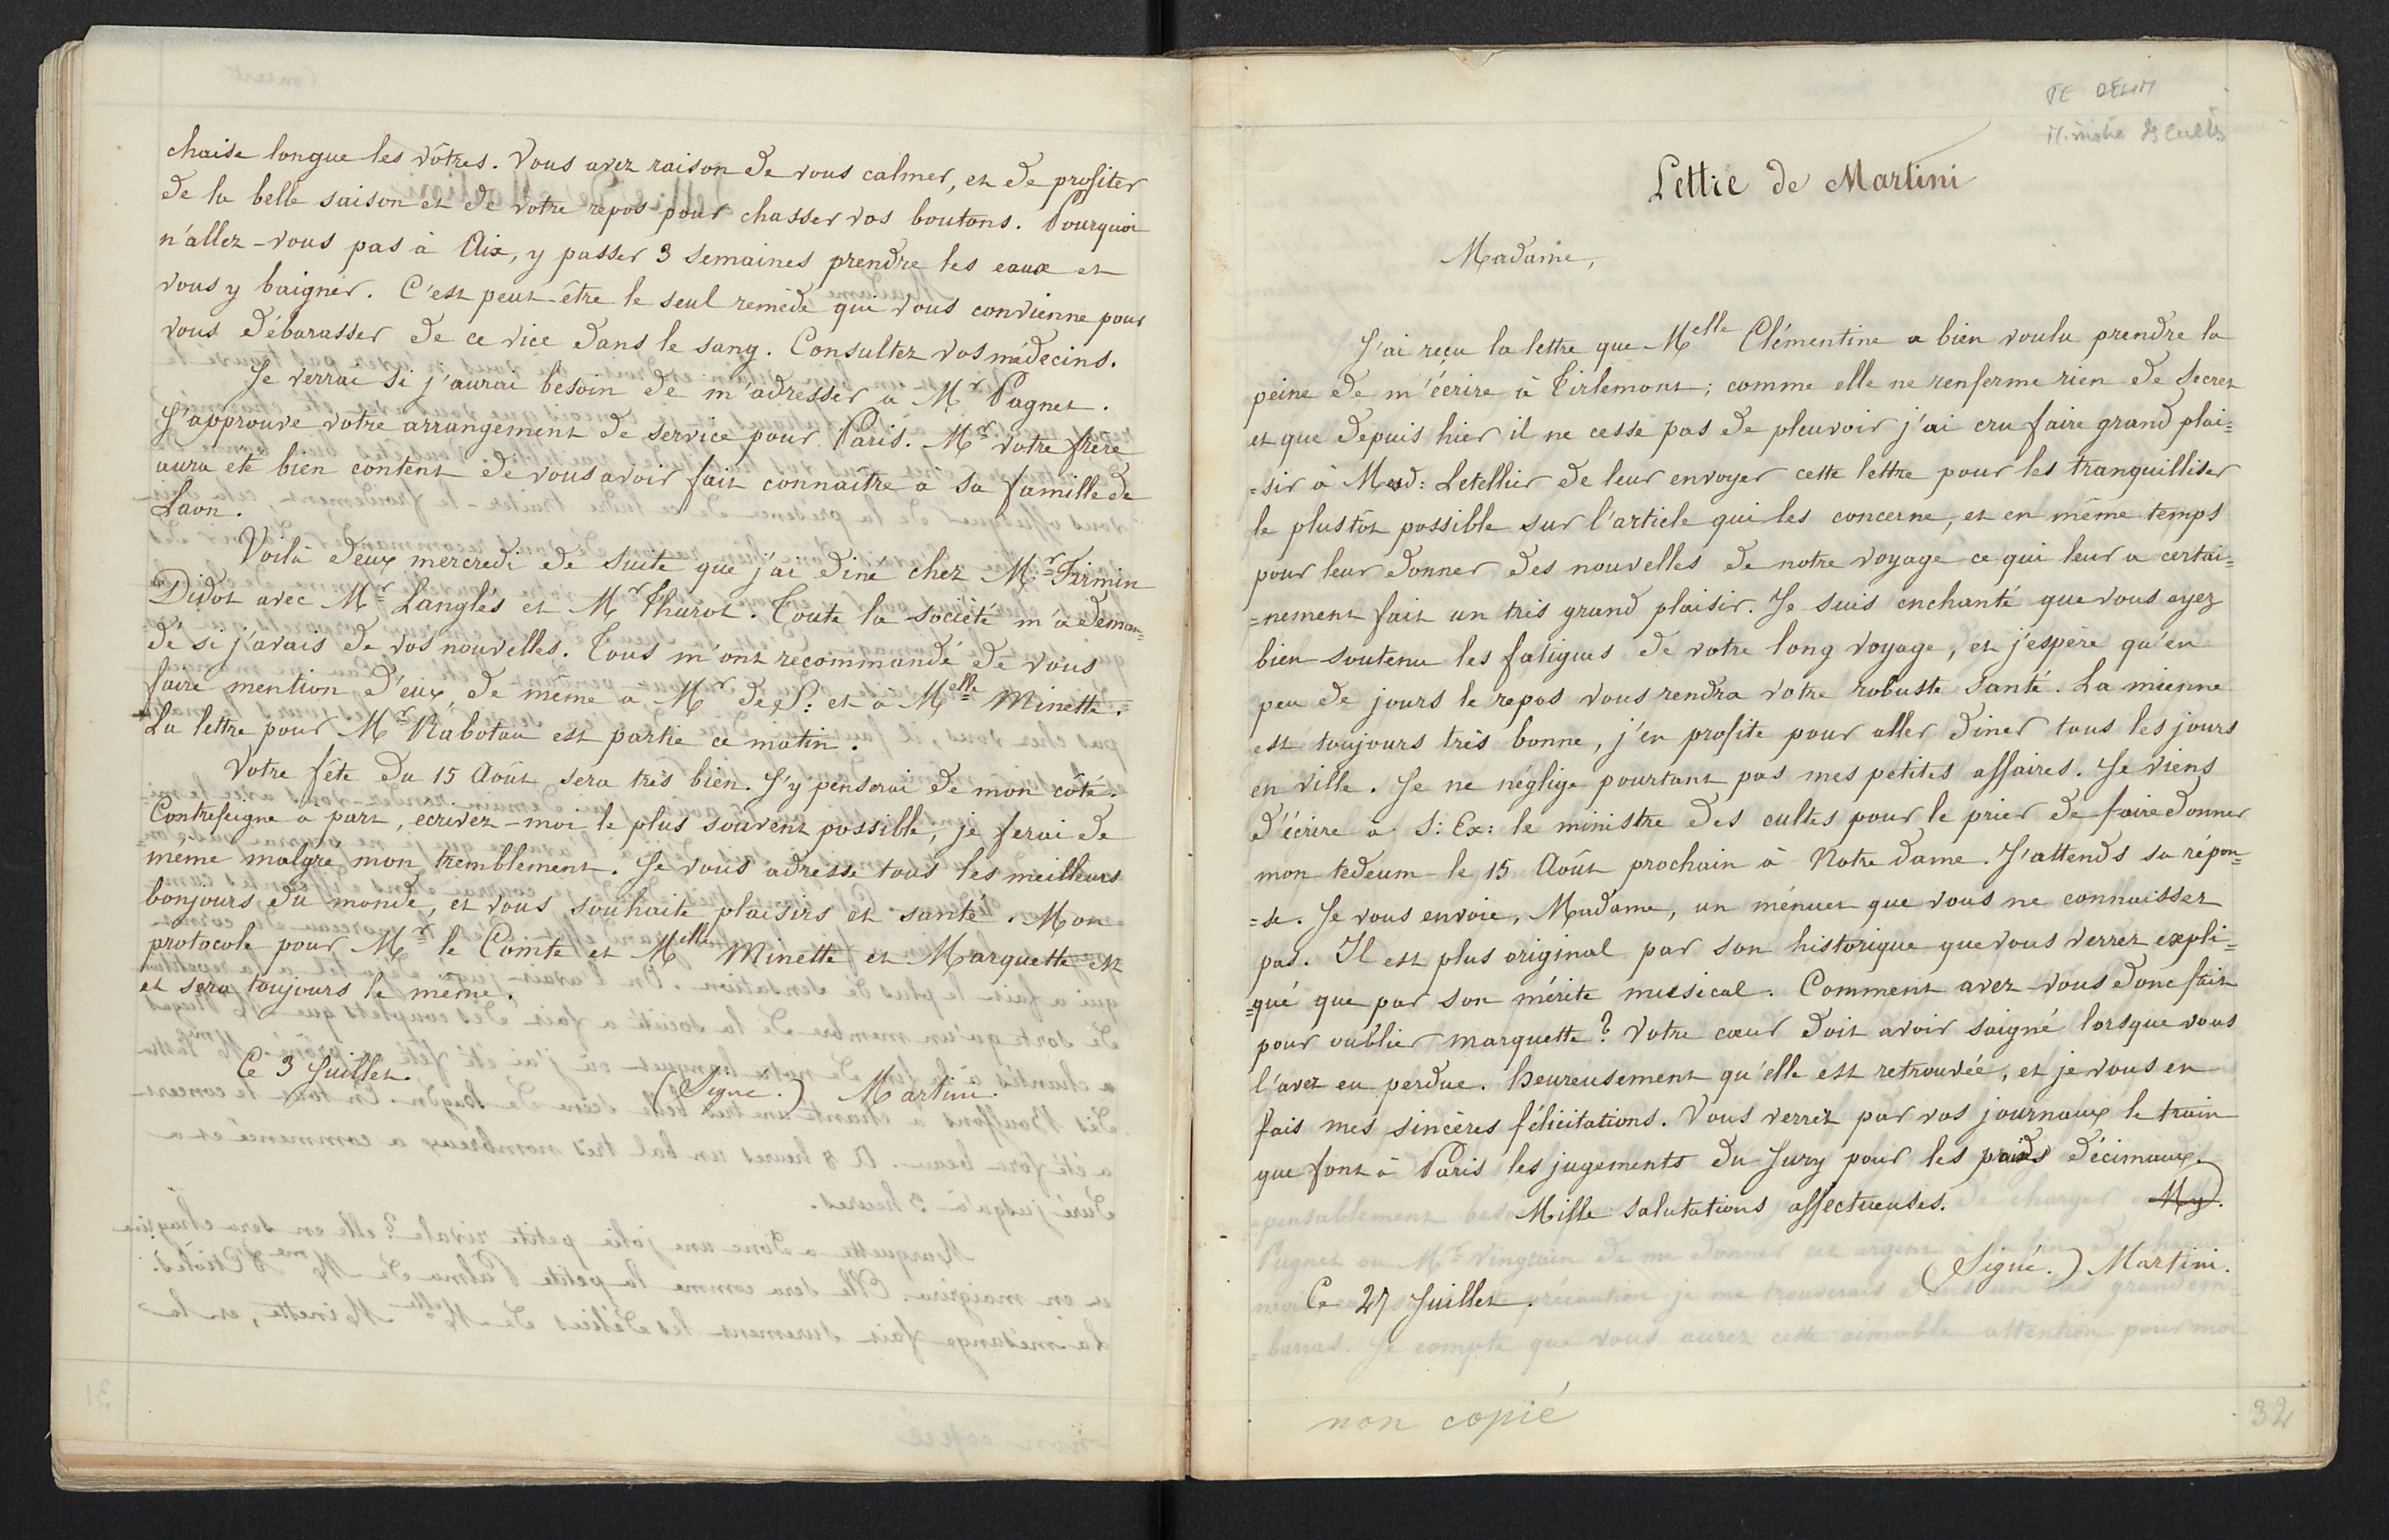 chaise longue les vôtres. Vous avez raison de vous calmer, et de profiter
de la belle saison et de votre repos pour chasser vos boutons. Pourquoi
n'allez-vous pas à Aix, y passer 3 semaines prendre les eaux et
vous y baigner. C'est peut-être le seul remède qui vous convienne pour
vous débarasser de ce vice dans le sang. Consultez vos médecins.
Je verrai si j'aurai besoin de m'adresser a Mr Pagnet.
J'approuve votre arrangement de service pour Paris. Mr votre frère
aura eté bien content de vous avoir fait connaître à sa famille de
Laon.
Voilà deux mercredi de suite que j'ai diné chez Mr Firmin
Didot avec Mr Langlès et Mr Thurot. Toute la société m'a deman=
dé si j'avais de vos nouvelles. Tous m'ont recommandé de vous
faire mention d'eux, de même a Mr de P: et à Melle Minette.
La lettre pour Mr Rabotau est partie ce matin.
Votre fête du 15 Août sera très bien. J'y penserai de mon côté.
Contreseigne a part, ecrivez-moi le plus souvent possible, je ferai de
même malgré mon tremblement. Je vous adresse tous les meilleurs
bonjours du monde, et vous souhaite plaisirs et santé. Mon
protocole pour Mr le Comte et Melle Minette et Marquette est
et sera toujours le même.
Ce 3 Juillet.
(Signé.) Martini.
TE DEUM
Ministre des Cultes
Lettre de Martini
Madame,
J'ai reçu la lettre que Melle Clémentine a bien voulu prendre la
peine de m'écrire à Tirlemont; comme elle ne renferme rien de secret
et que depuis hier il ne cesse pas de pleuvoir j'ai cru faire grand plai=
=sir à Mesd: Letellier de leur envoyer cette lettre pour les tranquilliser
le plustôt possible sur l'article qui les concerne, et en même temps
pour leur donner des nouvelles de notre voyage ce qui leur a certai=
=nement fait un très grand plaisir. Je suis enchanté que vous ayez
bien soutenu les fatigues de votre long voyage, et j'espère qu'en
peu de jours le repos vous rendra votre robuste santé. La mienne
est toujours très bonne, j'en profite pour aller diner tous les jours
en ville. Je ne néglige pourtant pas mes petites affaires. Je viens
d'écrire a S: Ex: le ministre des cultes pour le prier de faire donner
mon tedeum le 15 Août prochain à Notre dame. J'attends sa répon=
=se. Je vous envoie, Madame, un ménuet que vous ne connaissez
pas. Il est plus original par son historique que vous verrez expli=
=qué que par son mérite musical. Comment avez-vous donc fait
pour oublier marquette? Votre cœur doit avoir saigné lorsque vous
l'avez eu perdue. Heureusement qu'elle est retrouvée, et je vous en
fais mes sincères félicitations. Vous verrez par vos journaux le train
que font à Paris les jugements du Jury pour les poids décimaux.
Mille salutations affectueuses.
(Signé.) Martini.
Ce 27 Juillet.
non copié
32